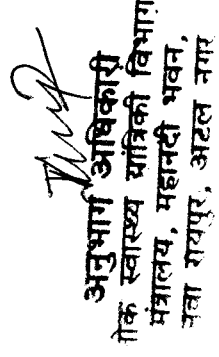 अनुभाग अधिकारी
स्वास्थ्य यांत्रिकी विभाग
मंत्रालय, महानदी भवन,
नवा रायपुर, अटल नगर